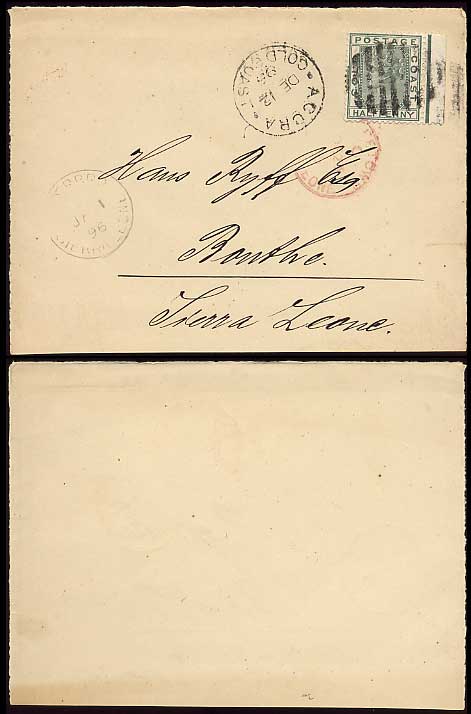 POSTAGE
COAST
HALFPENNY
ACCRA
GOLD COAST
DE
12
95
JA 1
96
Hans Ryff Esq
Bonthe.
Sierra Leone.